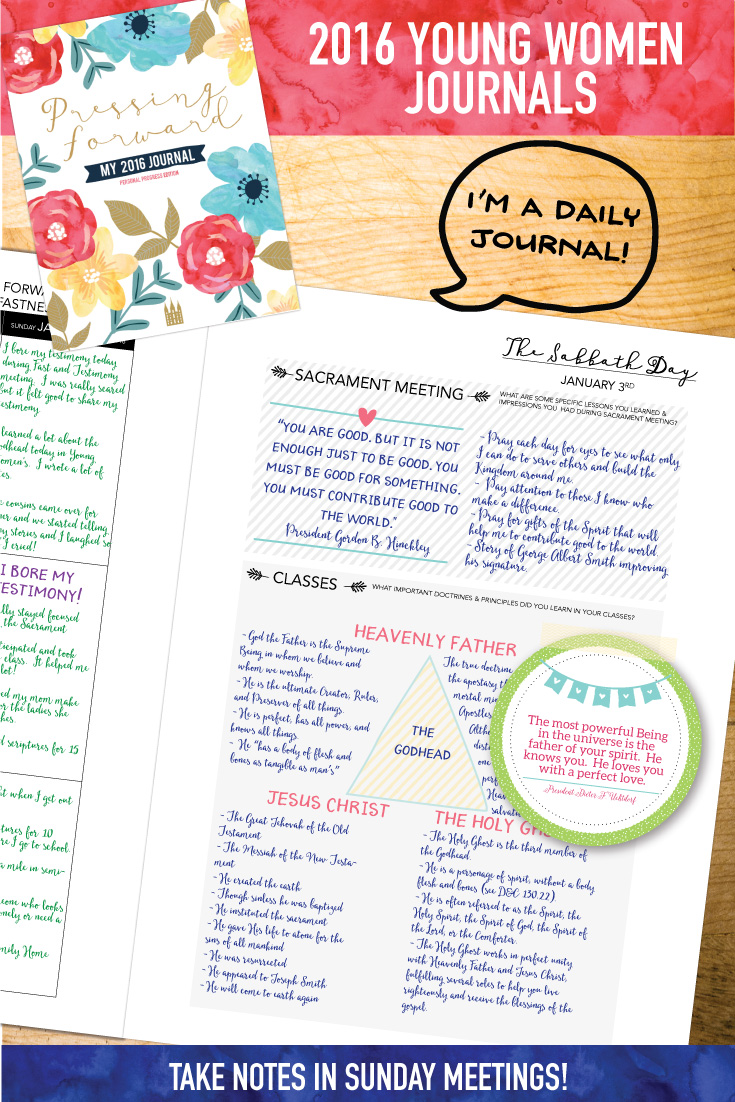 2016 YOUNG WOMEN
JOURNALS
Pressing
forward
MY 2016 JOURNAL
PERSONAL PROGRESS EDITION
I'M A DAILY
JOURNAL!
FORWA
FASTNES
SUNDAY JA
I bore my testimony today
during Fast and Testimony
meeting. I was really scared
but it felt good to share my
testimony.
learned a lot about the
odhead today in Young
omen's. I wrote a lot of
es.
cousins came over for
er and we started telling
y stories and I laughed so
I cried!
I BORE MY
TESTIMONY!
lly stayed focused
the Sacrament
icipated and took
class. It helped me
lot!
ed my mom make
or the ladies she
hes.
d scriptures for 15
it when I get out
tures for 10
re I go to school
a mile in semi-
eone who looks
onely or need a
mily Home
The Sabbath Day
JANUARY 3RD
SACRAMENT MEETING
WHAT ARE SOME SPECIFIC LESSONS YOU LEARNED &
IMPRESSIONS YOU HAD DURING SACRAMENT MEETING?
"YOU ARE GOOD. BUT IT IS NOT
ENOUGH JUST TO BE GOOD. YOU
MUST BE GOOD FOR SOMETHING.
YOU MUST CONTRIBUTE GOOD TO
THE WORLD."
President Gordon B. Hinckley
- Pray each day for eyes to see what only
I can do to serve others and build the
Kingdom around me.
- Pay attention to those I know who
make a difference.
- Pray for gifts of the Spirit that will
help me to contribute good to the world.
- Story of George Albert Smith improving
his signature.
CLASSES
WHAT IMPORTANT DOCTRINES & PRINCIPLES DID YOU LEARN IN YOUR CLASSES?
HEAVENLY FATHER
- God the Father is the Supreme
Being in whom we believe and
whom we worship.
- He is the ultimate Creator, Ruler,
and Preserver of all things.
- He is perfect, has all power, and
knows all things.
- He "has a body of flesh and
bones as tangible as man's"
THE
GODHEAD
The true doctrine
the apostasy th
mortal mi
Apostles
Alth
dist
one
perf
Heav
salvati
The most powerful Being
in the universe is the
father of your spirit. He
knows you. He loves you
with a perfect love.
President Dieter F Uchtdorf
JESUS CHRIST
- The Great Jehovah of the Old
Testament
- The Messiah of the New Testa-
ment
- He created the earth
- Though sinless he was baptized
- He instituted the sacrament
- He gave His life to atone for the
sins of all mankind
- He was resurrected
- He appeared to Joseph Smith
- He will come to earth again
THE HOLY GH
- The Holy Ghost is the third member of
the Godhead.
- He is a personage of spirit, without a body
flesh and bones (see D&C 130.22)
- He is often referred to as the Spirit, the
Holy Spirit, the Spirit of God, the Spirit of
the Lord, or the Comforter.
- The Holy Ghost works in perfect unity
with Heavenly Father and Jesus Christ,
fulfilling several roles to help you live
righteously and receive the blessings of the
gospel.
TAKE NOTES IN SUNDAY MEETINGS!